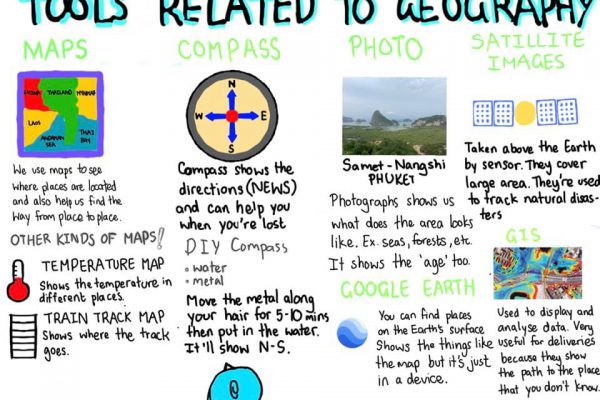 TOOLS RELATED TO GEOGRAPHY
MAPS
CHINA
THAILAND
MYANMAR
LAOS
ANDAMAN
SEA
THAI
BAY
We use maps to see
where places are located
and also help us find the
way from place to place.
OTHER KINDS OF MAPS!
TEMPERATURE MAP
Shows the temperature in
different places.
TRAIN TRACK MAP
Shows where the track
goes.
COMPASS
N
W
E
S
Compass shows the
directions (NEWS)
and can help you
when you're lost
DIY Compass
• water
• metal
Move the metal along
your hair for 5-10 mins
then put in the water.
It'll show N-S.
PHOTO
Samet-Nangshi
PHUKET
Photographs shows us
what does the area looks
like. Ex. seas, forests, etc.
It shows the 'age' too.
GOOGLE EARTH
You can find places
on the Earth's surface
Shows the things like
the map but it's just
in a device.
SATILLITE
IMAGES
Taken above the Earth
by sensor. They cover
large area. They're used
to track natural disas-
ters
GIS
Used to display and
analyse data. Very
useful for deliveries
because they show
the path to the place
that you don't know.